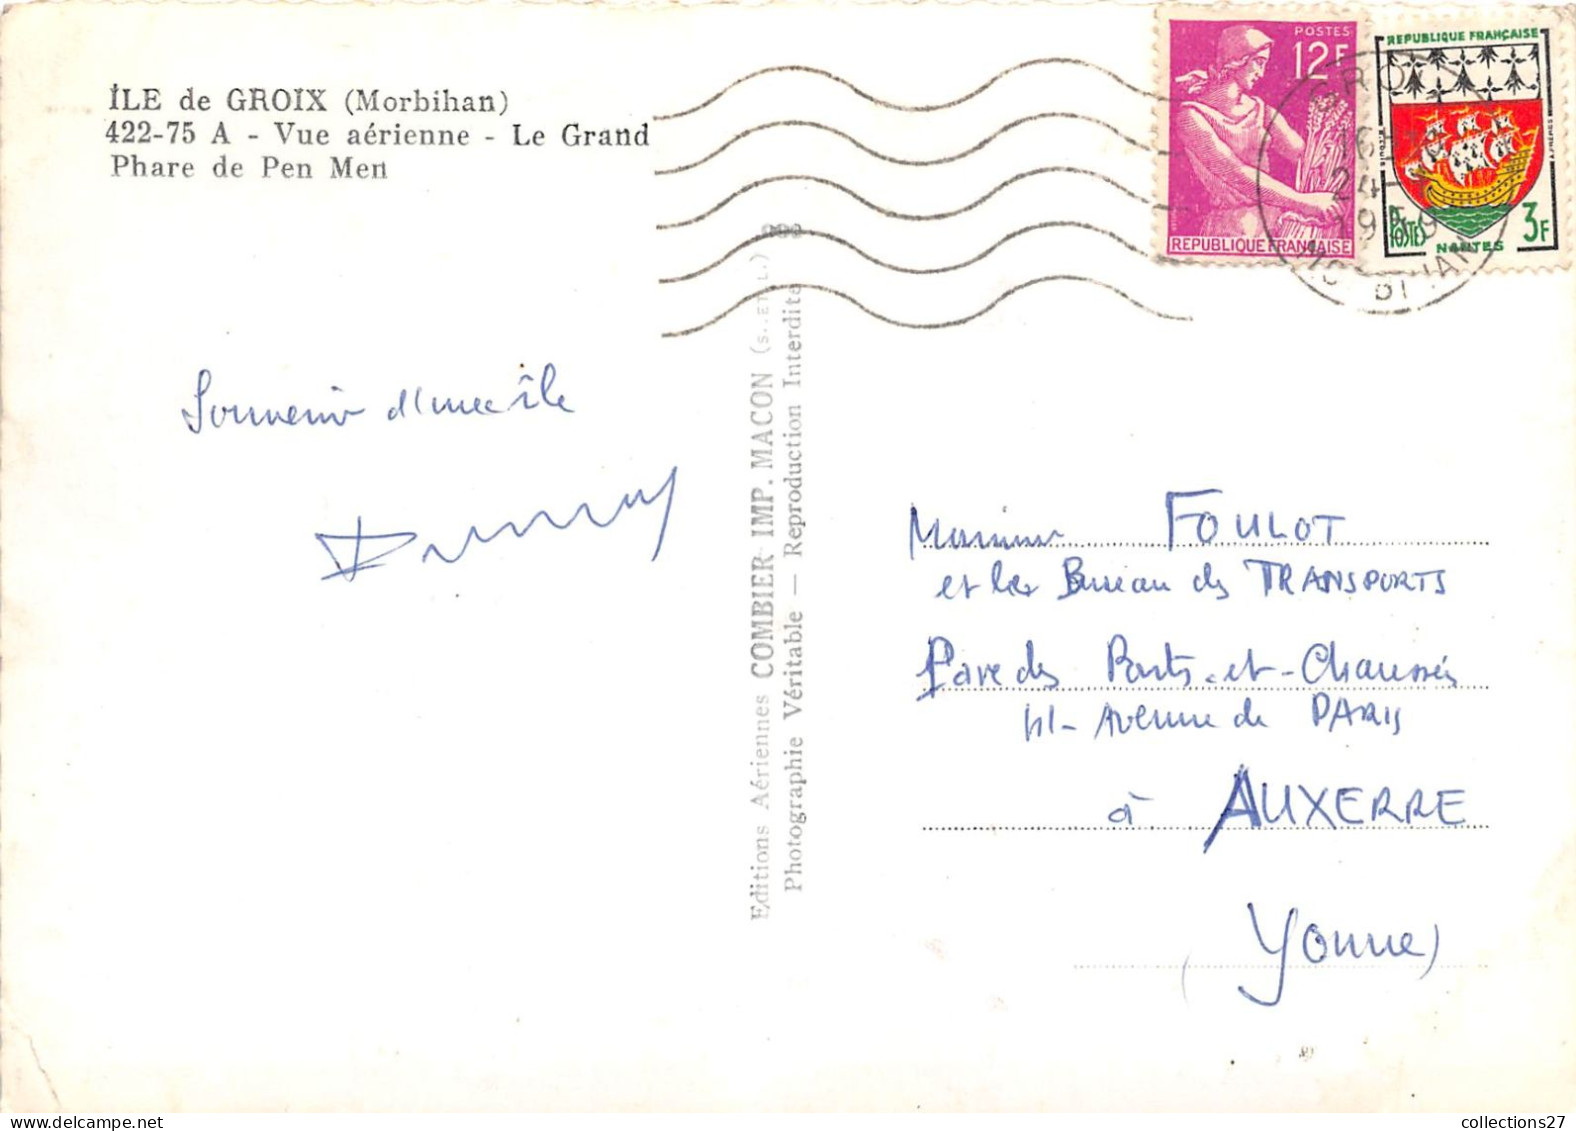 ÎLE de GROIX (Morbihan)
422-75 A - Vue aérienne - Le Grand
Phare de Pen Men
POSTES
12F
REPUBLIQUE FRANÇAISE
REPUBLIQUE FRANÇAISE
POSTES
3F
NANTES
Souvenir d'une île
Editions Aériennes COMBIER IMP. MACON (S. ET L.)
Photographie Véritable — Reproduction Interdite
Monsieur FOULOT
et les Bureau des TRANSPORTS
des Ponts-et-Chaussées
Avenue de PARIS
à AUXERRE
(Yonne)
collections27